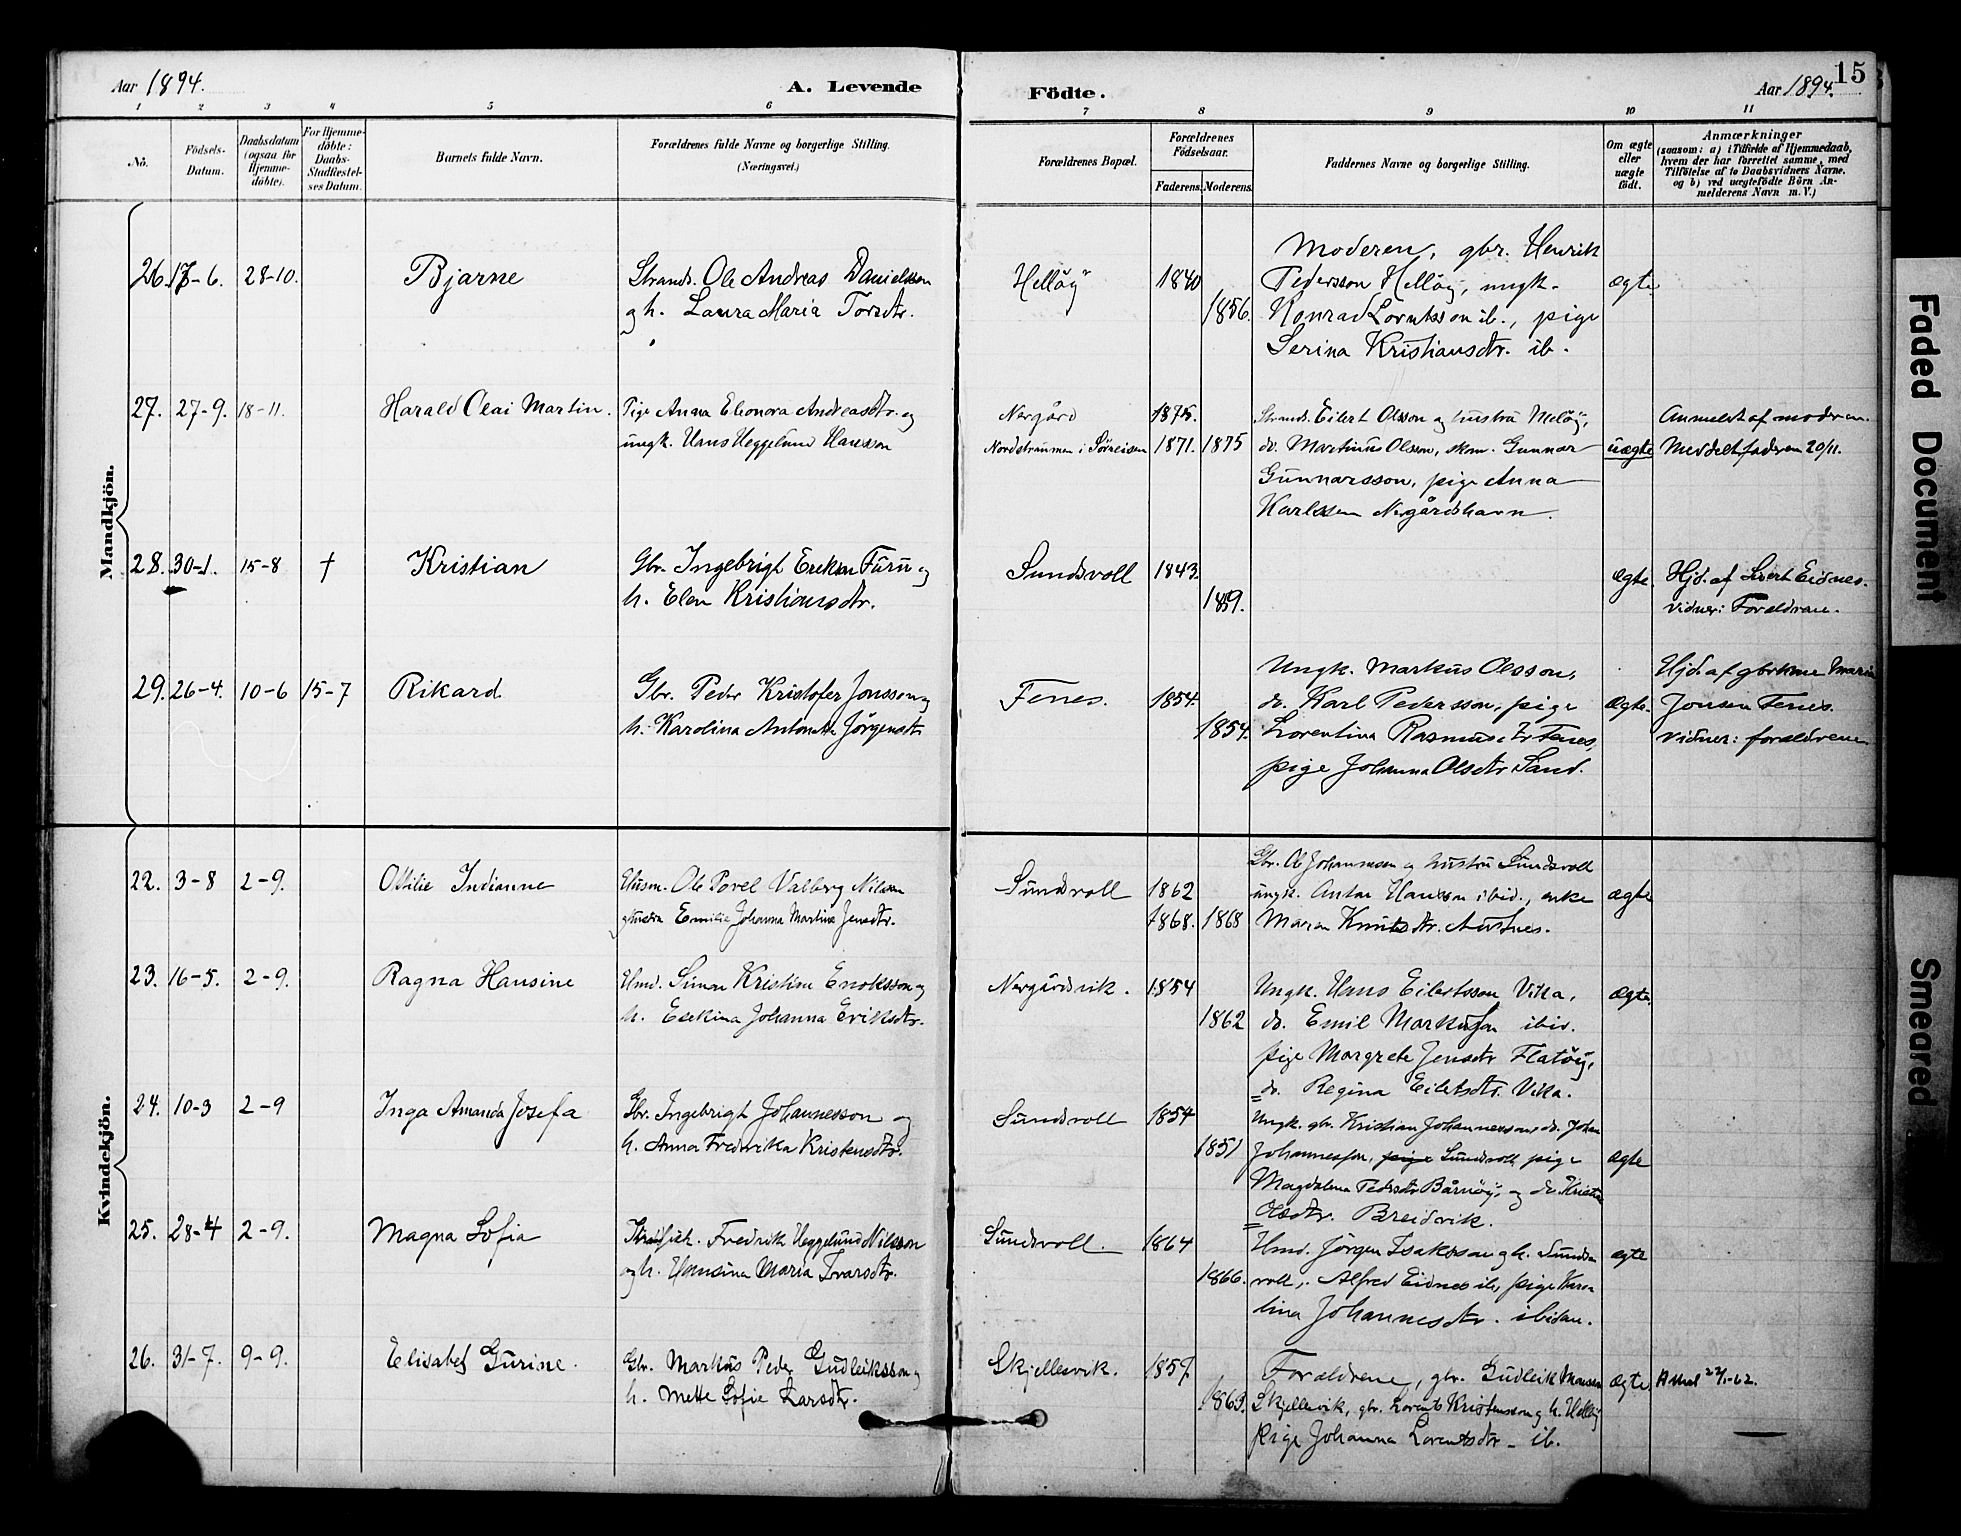 Aar 1894.
A. Levende
Födte.
Aar 1894.
15
1 2 3 4 5 6 7 8 9 10 11
No.
Födsels-
Datum.
Daabsdatum
(ogsaa for
Hjemme-
döbte).
For Hjemme-
döbte:
Daabs-
Stadfæstel-
ses Datum.
Barnets fulde Navn.
Forældrenes fulde Navne og borgerlige Stilling.
(Næringsvei.)
Forældrenes Bopæl.
Forældrenes
Födselsaar.
Faderens. Moderens.
Faddernes Navne og borgerlige Stilling.
Om ægte
eller
uægte
födt.
Anmærkninger
(saasom: a) i Tilfælde af Hjemmedaab,
hvem der har forrettet samme, med
Tilföielse af to Daabsvidners Navne,
og b) ved uægtefödte Börn An-
melderens Navn m. V.)
Mandkjön.
26. 17-6. 28-10. Bjarne
Strands. Ole Andreas Danielsson
og h. Laura Maria Torsdtr.
Hellöy 1840
1856.
Moderen, gbr. Henrik
Pedersson Hellöy, ungk.
Konrad Lorntsson ib., pige
Serina Kristiansdtr. ib.
ægte
27. 27-9. 18-11. Harald Olai Martin.
Pige Anna Eleonora Andreasdtr. og
ungk. Hans Heggelund Hansson
Nergård 1875.
Nordstraumen i Sörreisen 1871. 1875
Strands. Eilert Olsson og hustru Melöy,
do. Martinus Olsson, skom. Gunnar
Gunnarsson, pige Anna
Karlssen Nergårdshavn.
uægte
Anmeldt af moderen.
Meddelt faderen 20/11.
28. 30-1. 15-8 † Kristian
Gbr. Ingebrigt Erikson Furu og
h. Elen Kristiansdtr.
Sundsvoll 1843.
1859.
ægte.
Hjd. af Sivert Eidnes.
vidner: Foraldrane.
29. 26-4. 10-6 15-7 Rikard
Gbr. Peder Kristofer Jonsson og
h. Karolina Antonette Jörgensdtr
Fenes. 1854.
1854.
Ungk. Markus Olsson,
do. Karl Pedersson, pige
Lorentina Rasmusdtr Fenes,
pige Johanna Olsdtr Sand.
ægte.
Hjd. af gbrkone Maria
Jonsen Fenes.
vidner: foraldrene
Kvindekjön.
22. 3-8 2-9. Ottilie Indianne
Husm. Ole Povel Valberg Nilsson
og hustru Emilie Johanna Martine Jensdtr.
Sundsvoll 1862
1868. 1868
Gbr. Ole Johannesen og hustru Sundsvoll
ungk. Anton Hansson ibid., enke
Maren Knutsdtr. Austnes.
ægte
23. 16-5. 2-9. Ragna Hansine
Hmd. Simon Kristian Enoksson og
h. Esekina Johanna Eriksdtr.
Nergårdvik. 1854
1862
Ungk. Hans Eilertsson Vika,
do. Emil Markusson ibid.
pige Margrete Jensdtr Flatöy,
do. Regina Eilertsdtr. Vika.
ægte
24. 10-3 2-9 Inga Amanda Josefa
Gbr. Ingebrigt Johannesson og
h. Anna Fredrika Kristensdtr.
Sundsvoll 1854
1851
Ungk. gbr. Kristian Johannesson, do. Johan
Johannesson, pige Sundsvoll pige
Magdalena Pedersdtr Bårnöy, og do.
Olsdtr. Breidvik.
ægte
25. 28-4 2-9. Magna Sofia
Fredrik Heggelund Nilsson
og h. Hansina Maria Ivarsdtr.
Sundsvoll. 1864
1866.
Hmd. Jörgen Isaksson og h. Sunds
voll, Alfred Eidnes ib, pige Karo
lina Johannesdtr. ibidem.
ægte
26. 31-7. 9-9. Elisabet Gurine.
Gbr. Markus Peder Gudleiksson og
h. Mette Sofie Larsdtr.
Skjellesvik. 1857
1863.
Foraldrene, gbr. Gudleik Hansen
Skjellesvik, gbr. Lorents Kristensson og h. Hellöy
pige Johanna Lorentsdtr - ib.
ægte
Faded Document
Smeared